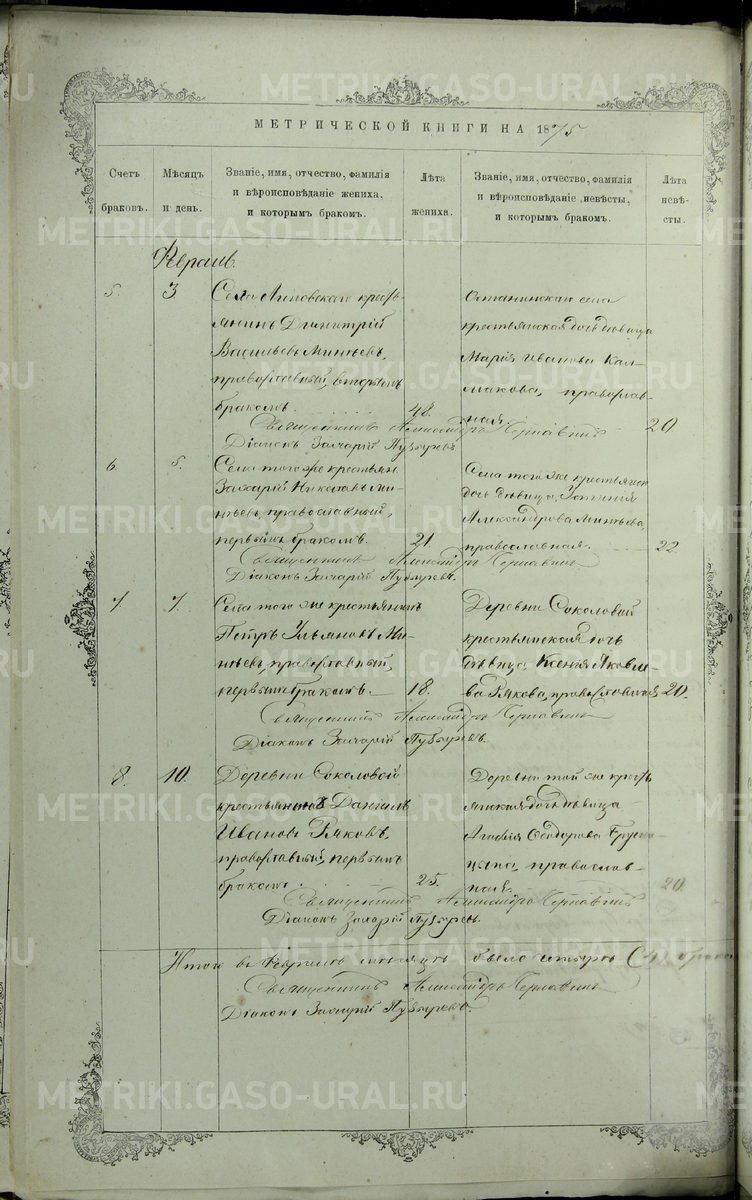 МЕТРИЧЕСКОЙ КНИГИ НА 1875
Счетъ браковъ.
Мѣсяцъ и день.
Званіе, имя, отчество, фамилія
и вѣроисповѣданіе жениха,
и которымъ бракомъ.
Лѣта жениха.
Званіе, имя, отчество, фамилія
и вѣроисповѣданіе невѣсты,
и которымъ бракомъ.
Лѣта невѣсты.
Февраль.
5. 3
Села Липовскаго кресть-
янинъ Димитрій
Васильевъ Минѣевъ,
православный, вторымъ
бракомъ. 48.
Останинскаго села
крестьянская дочь дѣвица
Марія Иванова Кал-
макова, православ-
ная. 20
Священникъ Александръ
Діаконъ Захарій Пузыревъ
6. 5.
Села того же крестьян.
Захарій Николаевъ Ми-
нѣевъ, православный,
первымъ бракомъ. 21.
Села того же крестьянск
дочь дѣвица, Устинія
Александрова Минѣева,
православная. 22
Священникъ Александръ
Діаконъ Захарій Пузыревъ.
7. 7.
Села того же крестьянинъ
Петръ Ульяновъ Ми-
нѣевъ, православный,
первымъ бракомъ. 18.
Деревни Соколовой
крестьянская дочь
дѣвица Ксенія Яковле-
ва Рякова, православная 20.
Священникъ Александръ
Діаконъ Захарій Пузыревъ.
8. 10.
Деревни Соколовой
крестьянинъ Даніилъ
Ивановъ Ряковъ,
православный, первымъ
бракомъ. 25.
Деревни той же кресть-
янская дочь дѣвица
Агафія Ѳеодорова
православ-
ная. 20
Священникъ Александръ
Діаконъ Захарій Пузыревъ.
Итого въ Февралѣ мѣсяцѣ было четыре (4) брака
Священникъ Александръ
Діаконъ Захарій Пузыревъ.
METRIKI.GASO-URAL.RU